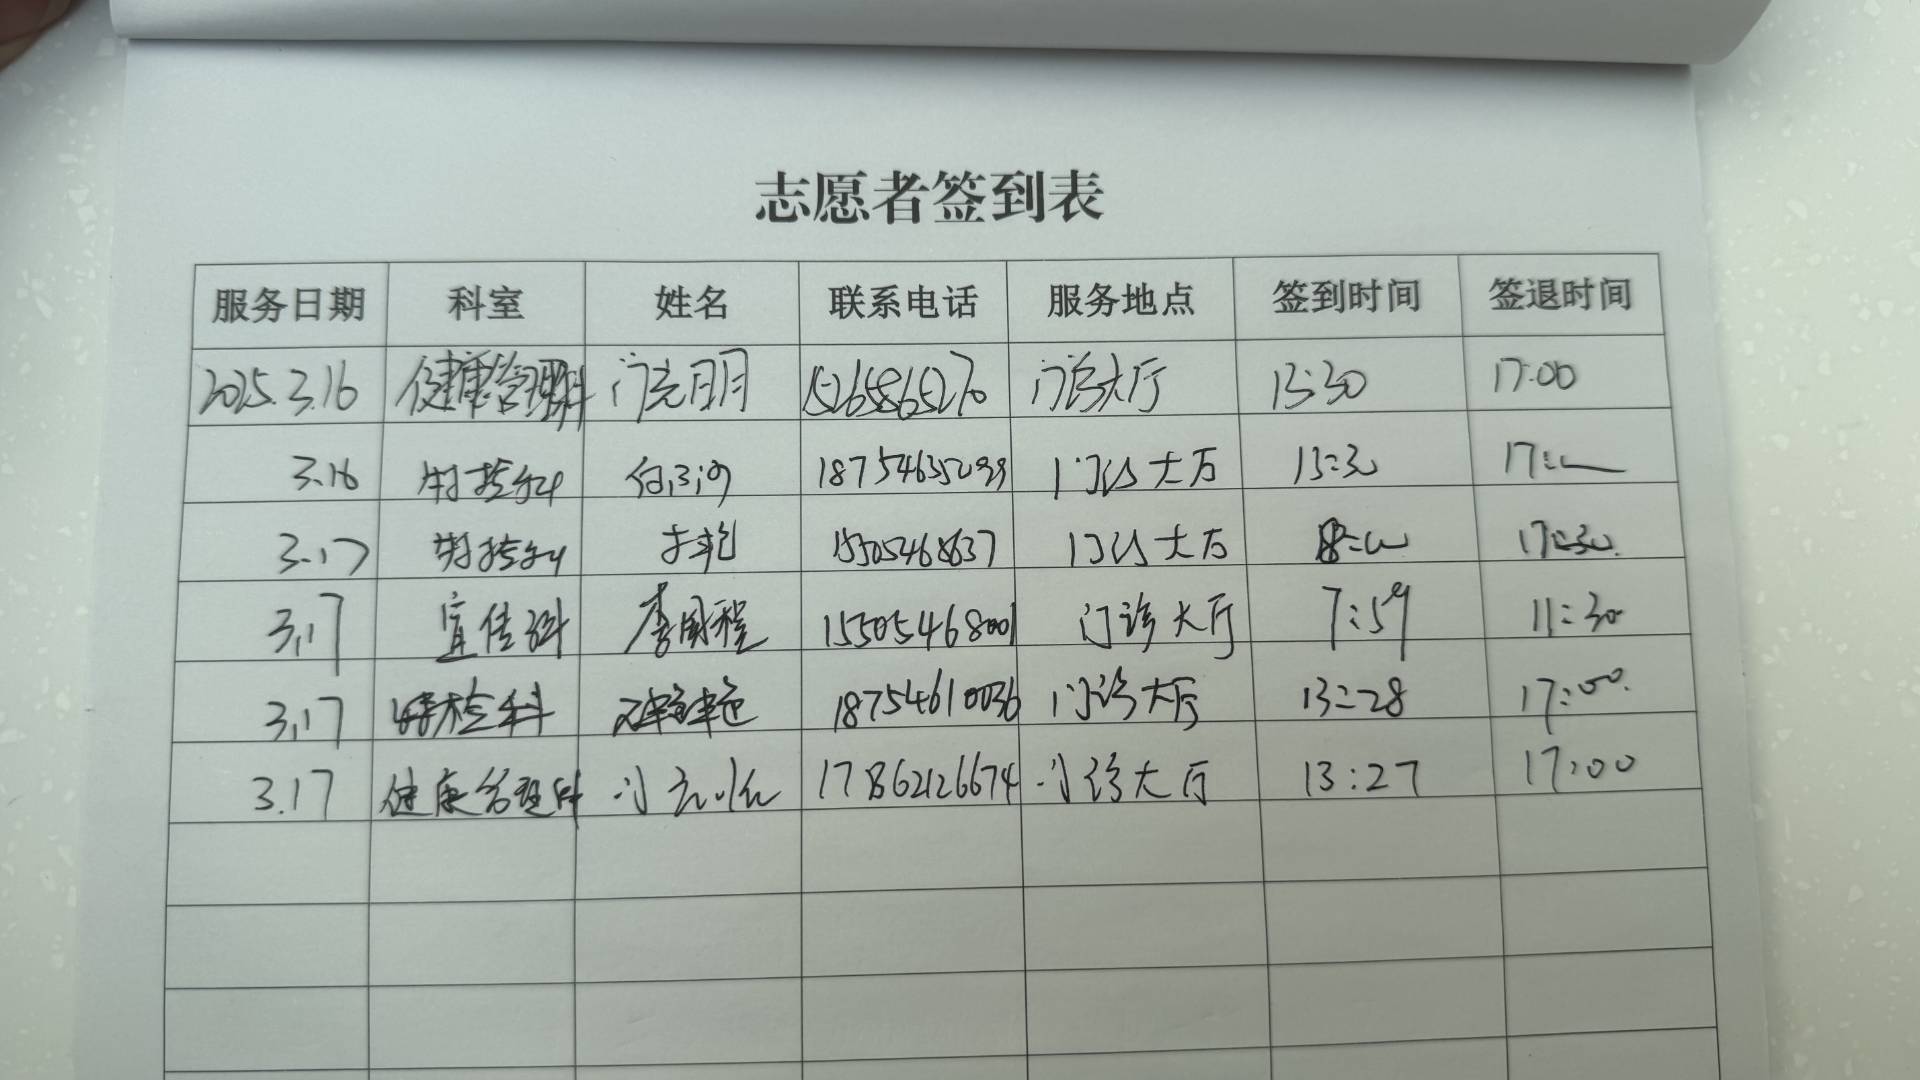 志愿者签到表
服务日期 科室 姓名 联系电话 服务地点 签到时间 签退时间
2025.3.16 健康管理科 15265865270 门诊大厅 13:30 17:00
3.16 门诊大厅 13:30 17:00
3.17 15305468637 门诊大厅 8:00 17:30
3.17 宣传科 李国程 15305468001 门诊大厅 7:59 11:30
3.17 特检科 18754610036 门诊大厅 13:28 17:00
3.17 健康管理科 17862126674 门诊大厅 13:27 17:00